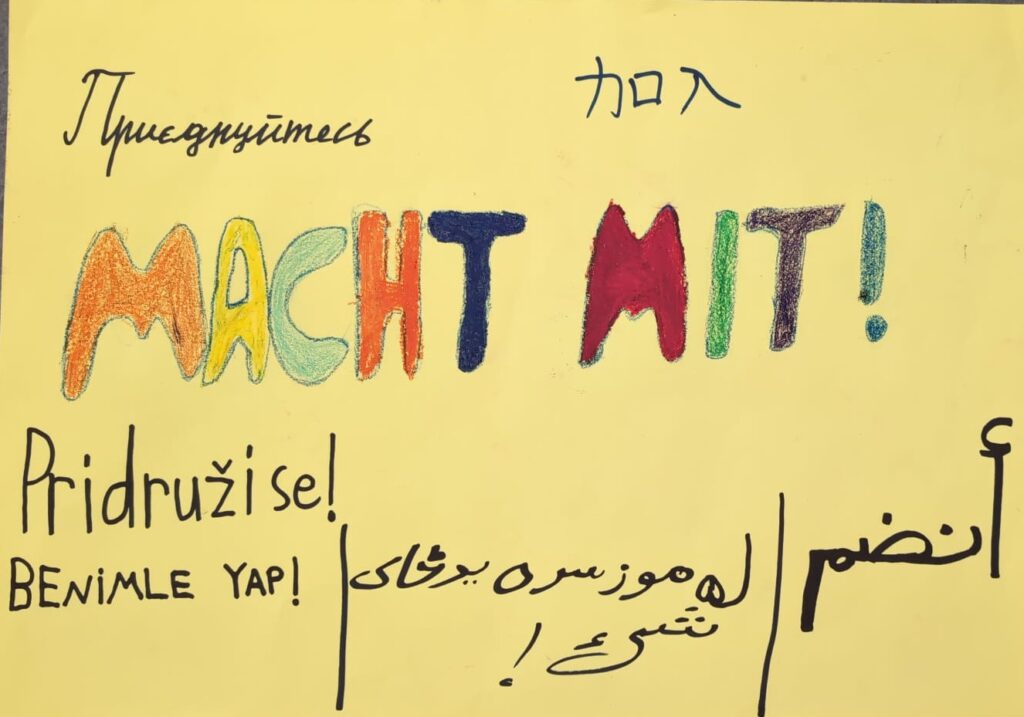 Приєднуйтесь
加入
MACHT MIT!
Pridruži se!
BENIMLE YAP!
له موز سره یوځای
شئ!
أنضم